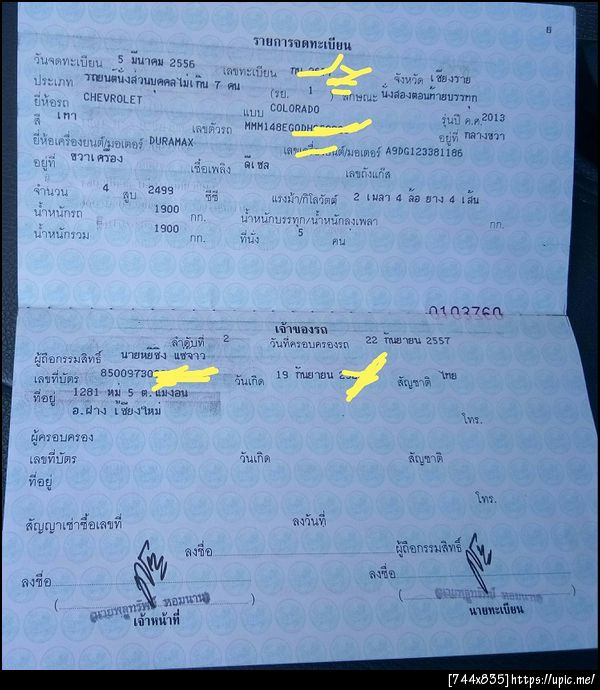 6
รายการจดทะเบียน
วันจดทะเบียน 5 มีนาคม 2556 เลขทะเบียน จังหวัด เชียงราย
ประเภท รถยนต์นั่งส่วนบุคคลไม่เกิน 7 คน (รย. 1 ) ลักษณะ นั่งสองตอนท้ายบรรทุก
ยี่ห้อรถ CHEVROLET แบบ COLORADO รุ่นปี ค.ศ.2013
สี เทา เลขตัวรถ MMM148EG อยู่ที่ กลางขวา
ยี่ห้อเครื่องยนต์/มอเตอร์ DURAMAX เลขเครื่องยนต์/มอเตอร์ A9DG123381186
อยู่ที่ ขวาเครื่อง เชื้อเพลิง ดีเซล เลขถังแก๊ส
จำนวน 4 สูบ 2499 ซีซี แรงม้า/กิโลวัตต์ 2 เพลา 4 ล้อ ยาง 4 เส้น
น้ำหนักรถ 1900 กก. น้ำหนักบรรทุก/น้ำหนักลงเพลา กก.
น้ำหนักรวม 1900 กก. ที่นั่ง 5 คน
0103760
เจ้าของรถ
ลำดับที่ 2 วันที่ครอบครองรถ 22 กันยายน 2557
ผู้ถือกรรมสิทธิ์ นายหยีซิง แซ่จาว
เลขที่บัตร 85009730 วันเกิด 19 กันยายน สัญชาติ ไทย
ที่อยู่ 1281 หมู่ 5 ต.แม่งอน
อ.ฝาง จ.เชียงใหม่
โทร.
ผู้ครอบครอง
เลขที่บัตร วันเกิด สัญชาติ
ที่อยู่
โทร.
สัญญาเช่าซื้อเลขที่ ลงวันที่
ลงชื่อ ผู้ถือกรรมสิทธิ์
ลงชื่อ ลงชื่อ
( ) ( )
เจ้าหน้าที่ นายทะเบียน
[744x835]https://upic.me/